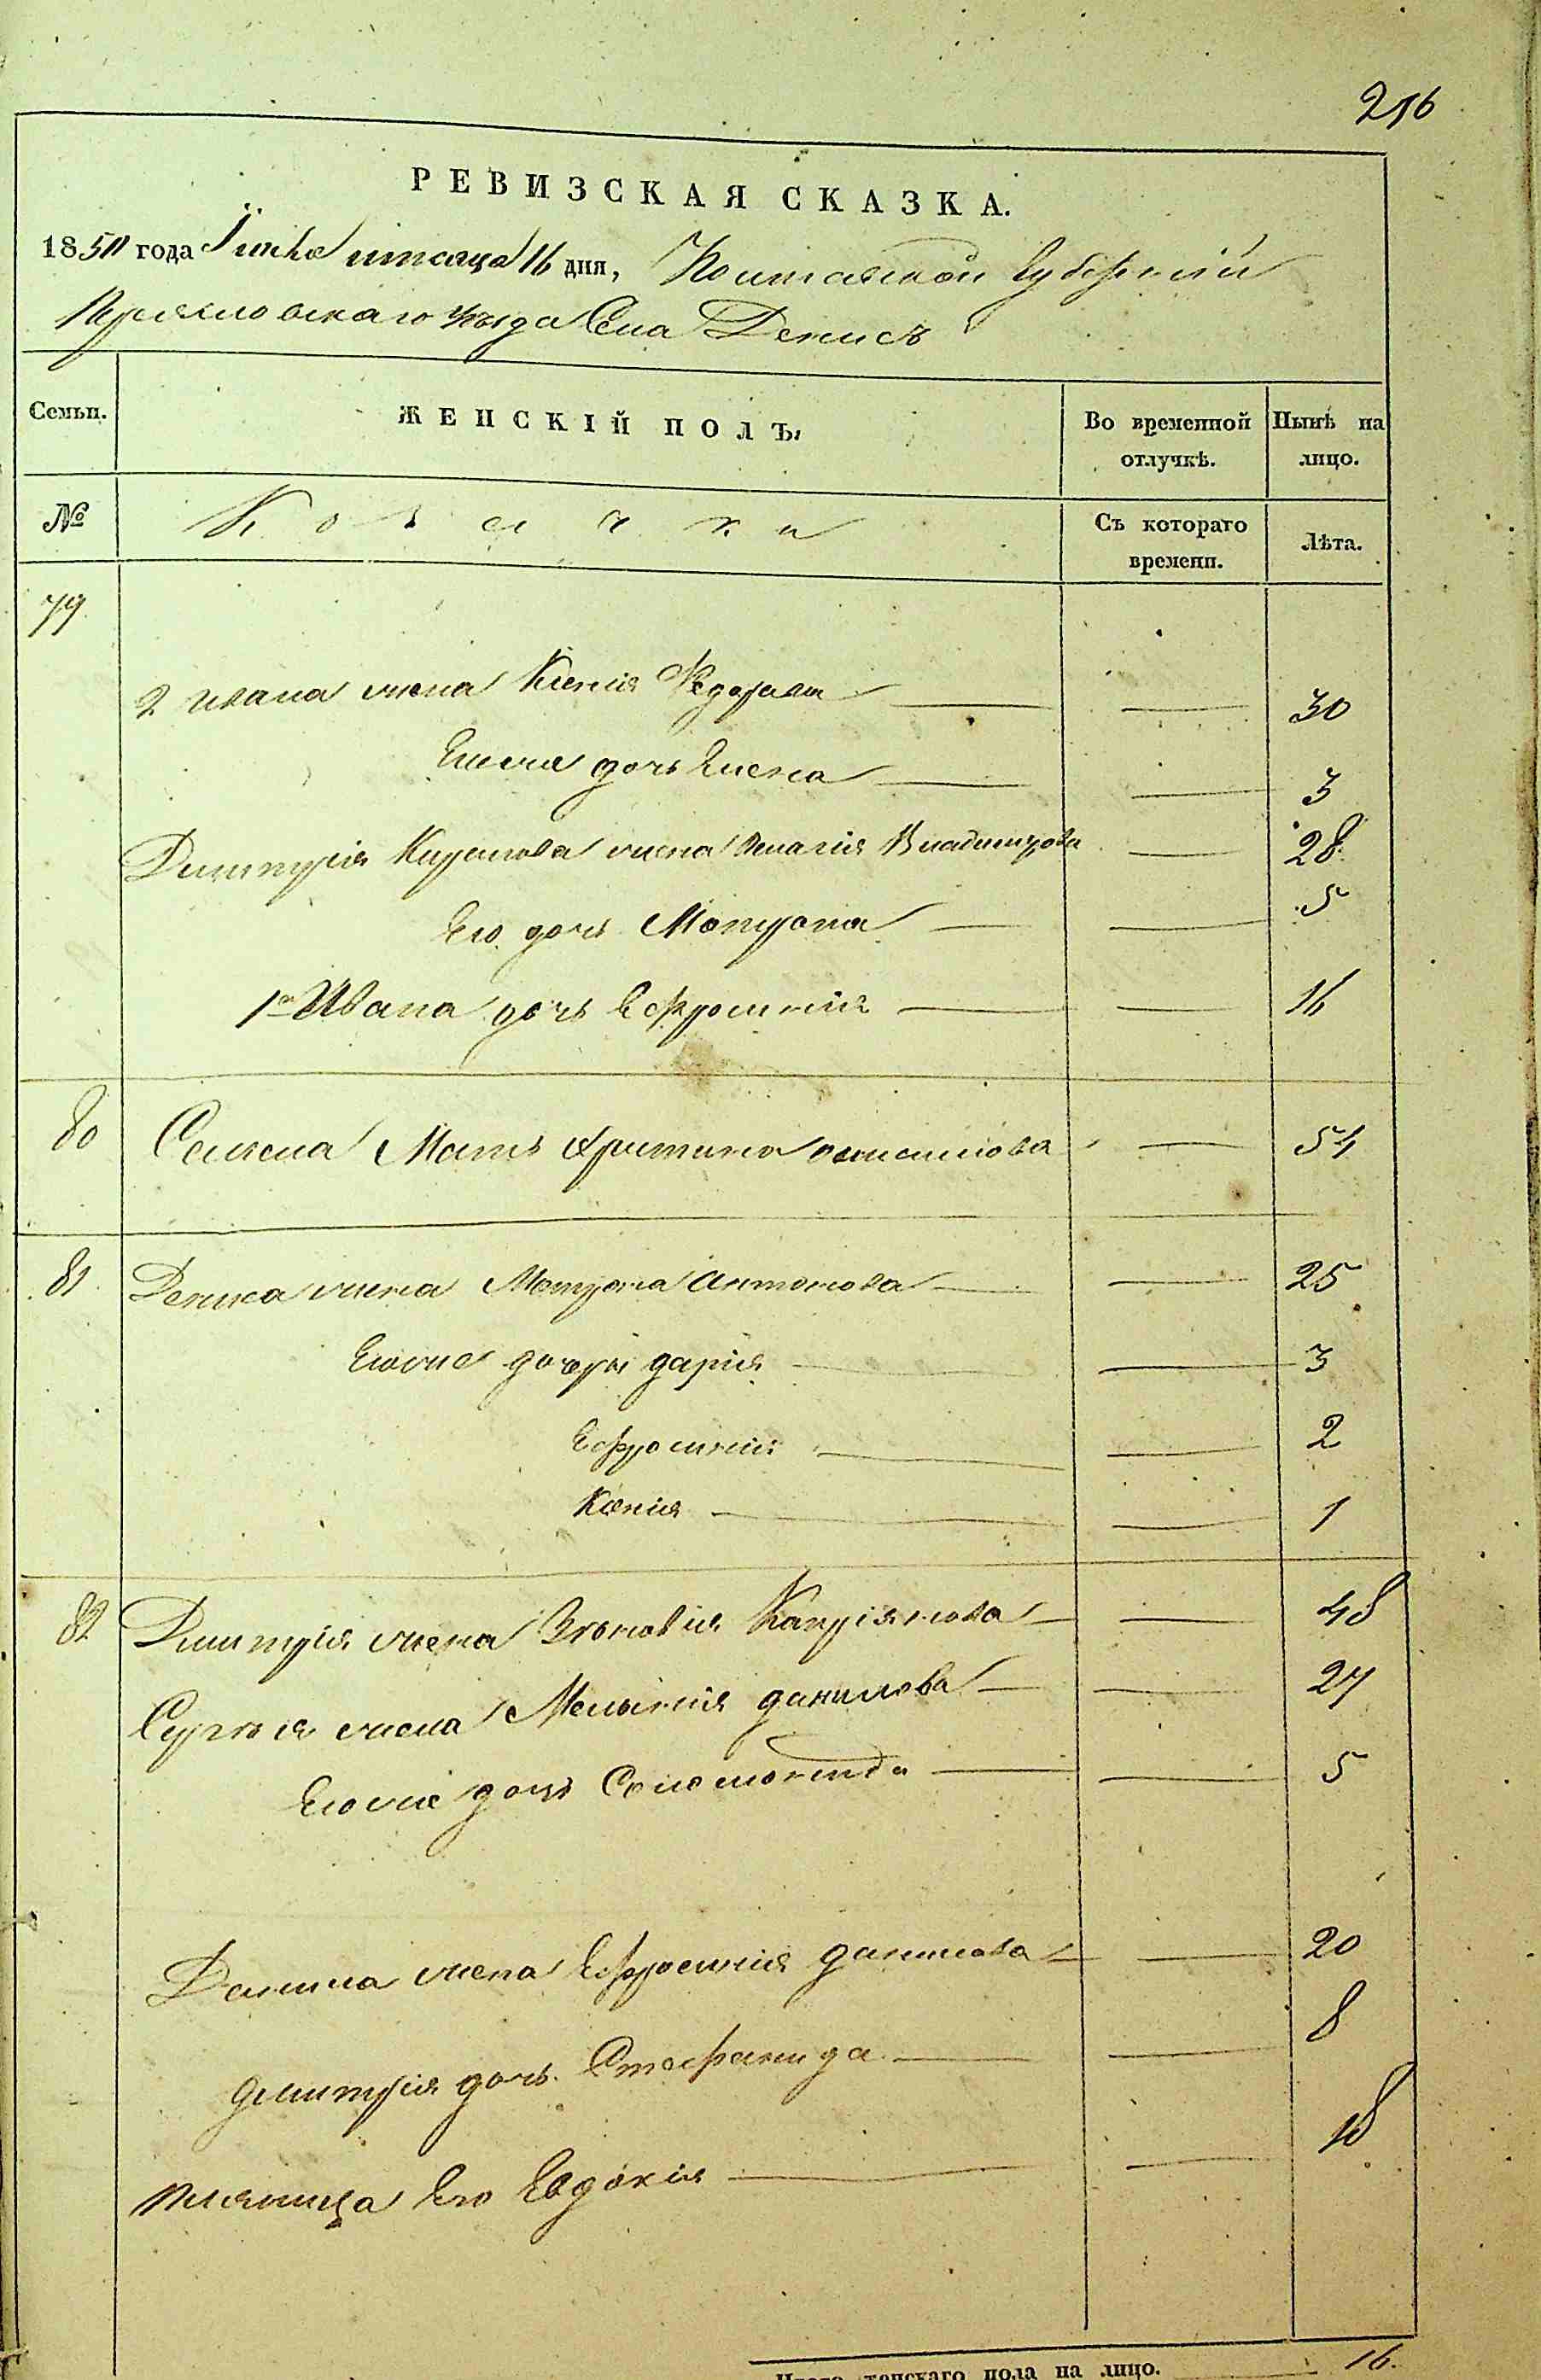 216
РЕВИЗСКАЯ СКАЗКА.
1850 года Іюня месяца 16 дня, Полтавской Губерніи
Переясловскаго уѣзда Села Денисъ
Семьи. ЖЕНСКІЙ ПОЛЪ, Во временной отлучкѣ. Нынѣ на лицо.
№ Козачки Съ котораго времени. Лѣта.
79
2 Ивана жена Ксенія Федорова — — 30
Егоже дочь Елена — — 3
Дмитрія Кирилова жена Пелагія Владимірова — 28
Его дочь Мотрона — — 5
1го Ивана дочь Ефросинія — — 16
80 Мать Христина — 54
81 Дениса жена Мотрона Антонова — — 25
Егоже дочери Дарія — — 3
Ефросинія — — 2
Ксенія — — 1
82 Дмитрія жена Зѣновія Капріянова — — 48
Сергѣя жена Меланія Данилова — — 27
Егоже дочь Соломонида — — 5
Данила жена Ефросинія Данилова — — 20
Дмитрія дочь Стефанида — — 8
Племяница Его Евдокія — — 18
Итого женскаго пола на лицо. 16.